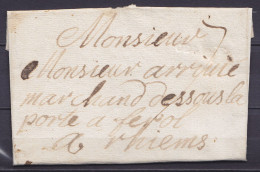 Monsieur
Monsieur arrouie
marchand dessous la
porte a ferol
a rhiems